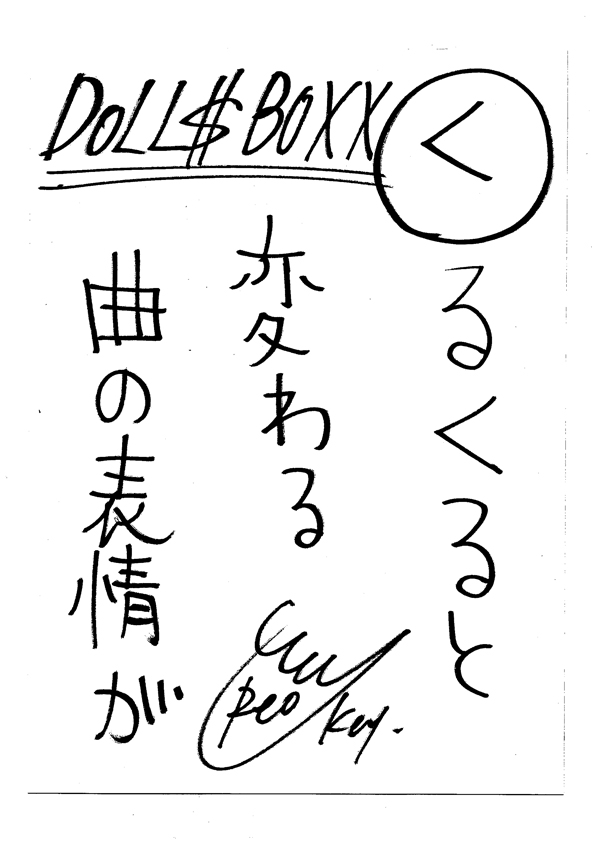 DOLL$BOXX
くるくると
変わる
曲の表情が